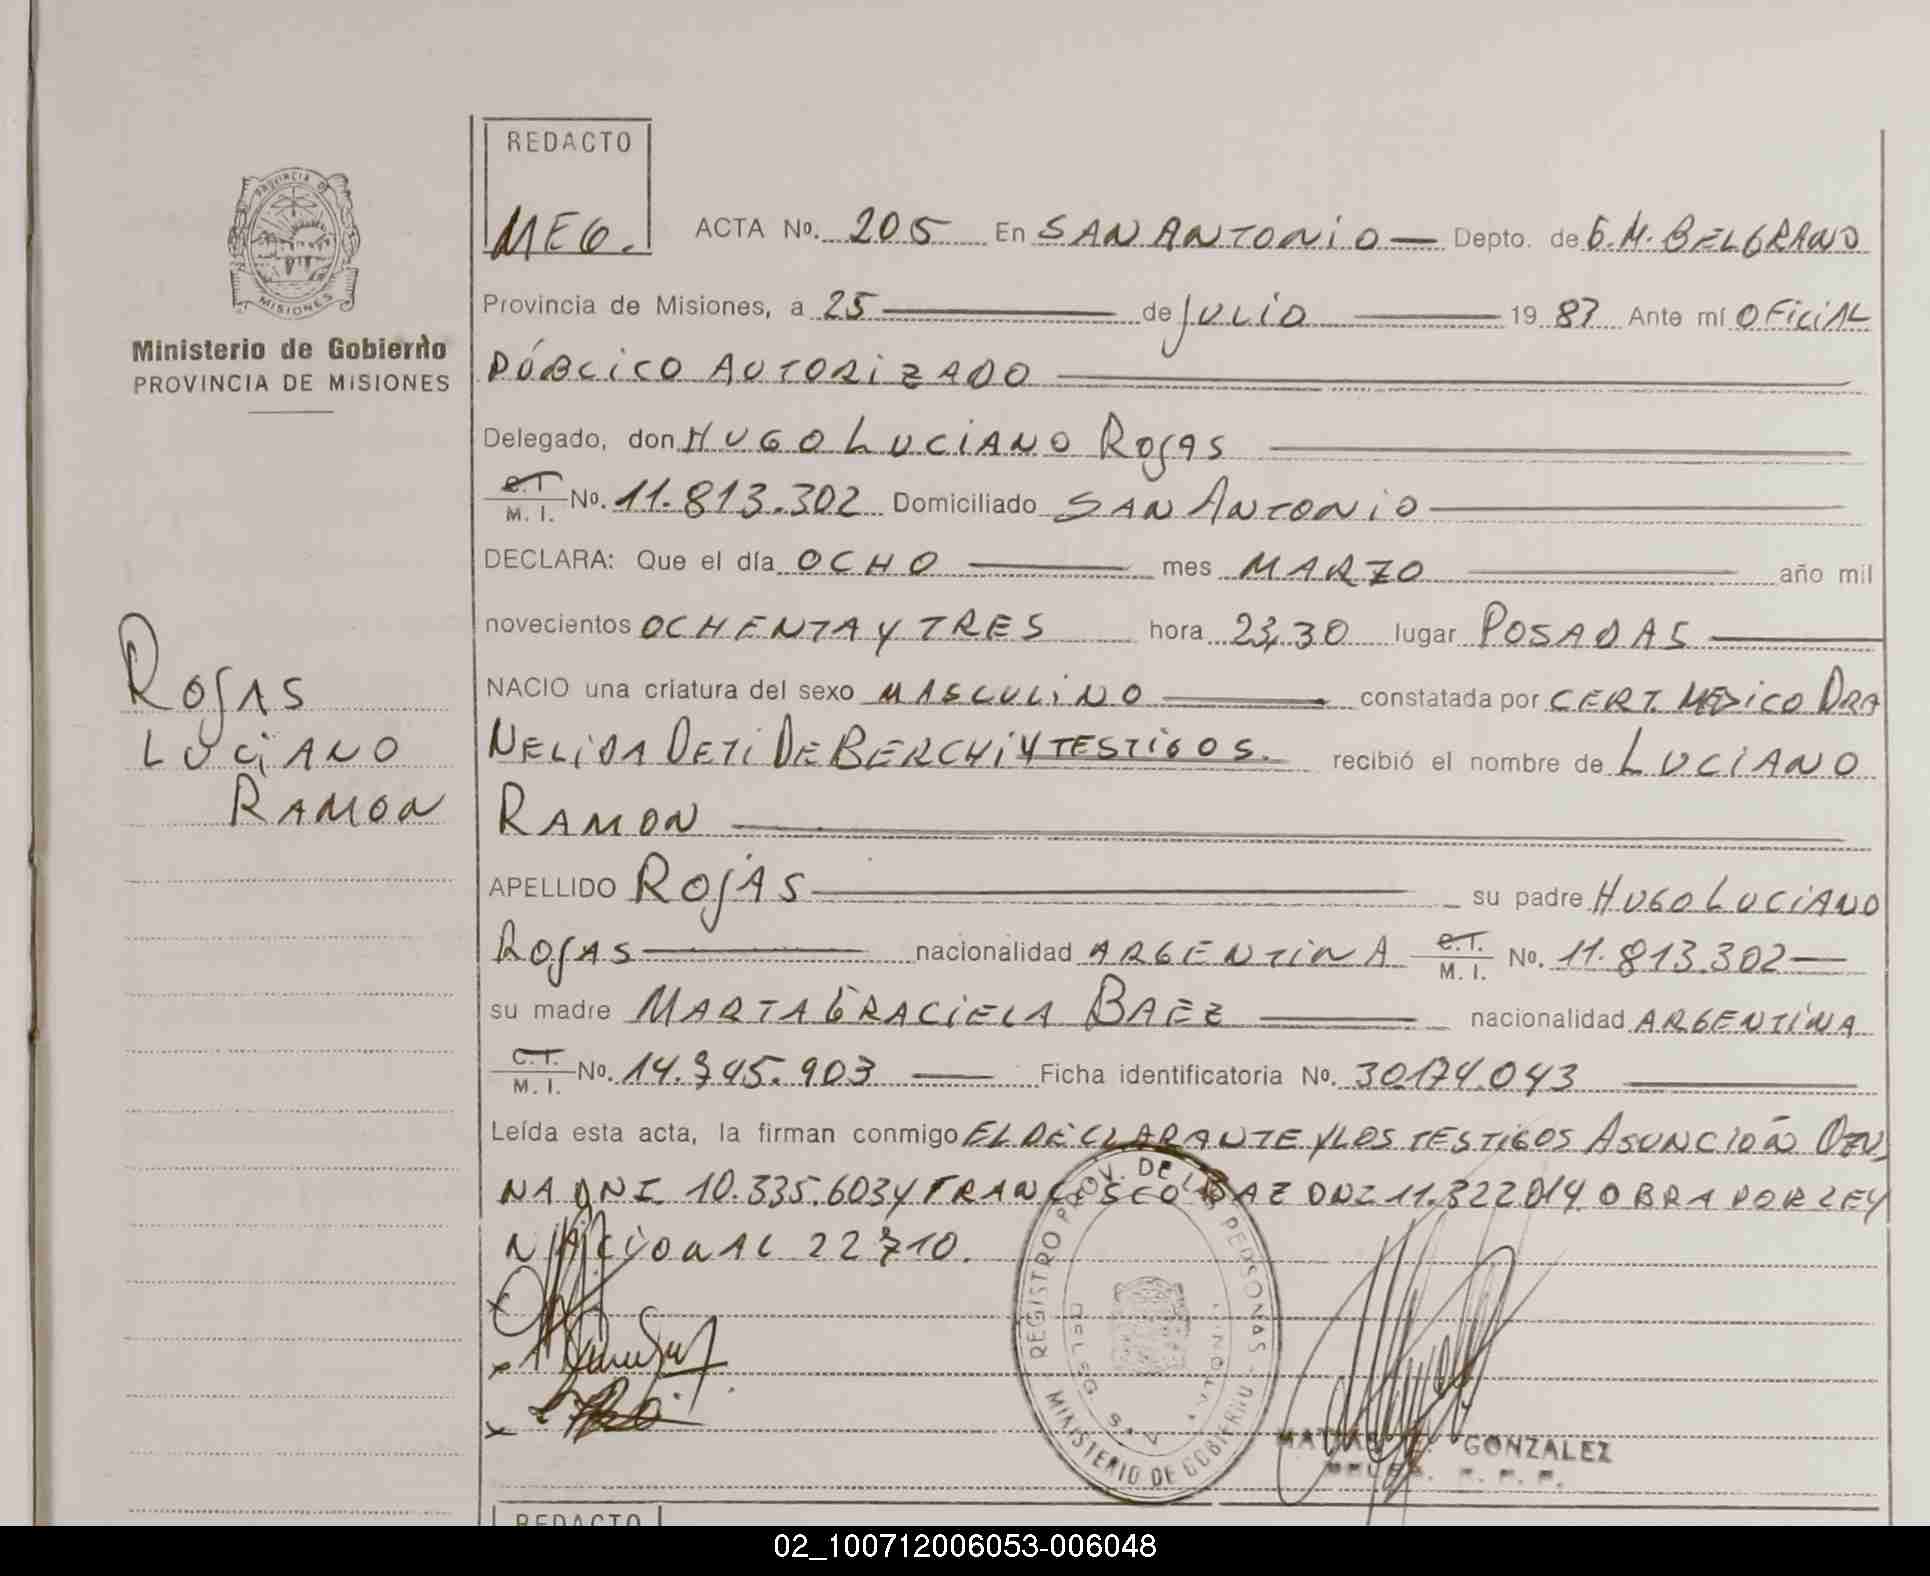 REDACTO
MEG.
ACTA No. 205 En SAN ANTONIO Depto. de G.M. BELGRANO
PROVINCIA DE
MISIONES
Provincia de Misiones, a 25 de JULIO 19 83 Ante mí OFICIAL
Ministerio de Gobierno
PROVINCIA DE MISIONES
PÚBLICO AUTORIZADO
Delegado, don HUGO LUCIANO ROJAS
C.I. M. I. No. 11.813.302 Domiciliado SAN ANTONIO
DECLARA: Que el día OCHO mes MARZO año mil
novecientos OCHENTA Y TRES hora 23,30 lugar POSADAS
ROJAS
LUCIANO
RAMON
NACIO una criatura del sexo MASCULINO constatada por CERT. MEDICO DRA
NELIDA DETI DE BERCHI Y TESTIGOS. recibió el nombre de LUCIANO
RAMON
APELLIDO ROJAS su padre HUGO LUCIANO
ROJAS nacionalidad ARGENTINA C.I. M. I. No. 11.813.302
su madre MARTA GRACIELA BAEZ nacionalidad ARGENTINA
C.I. M. I. No. 14.745.903 Ficha identificatoria No. 30174.043
Leída esta acta, la firman conmigo EL DECLARANTE Y LOS TESTIGOS ASUNCIÓN OZU
NA DNI 10.335.603 Y FRANCISCO BAEZ DNI 11.322.014. OBRA POR LEY
NACIONAL 22710.
REGISTRO PROV. DE LAS PERSONAS
MINISTERIO DE GOBIERNO
DELEG.
GONZALEZ
REDACTO
02_100712006053-006048